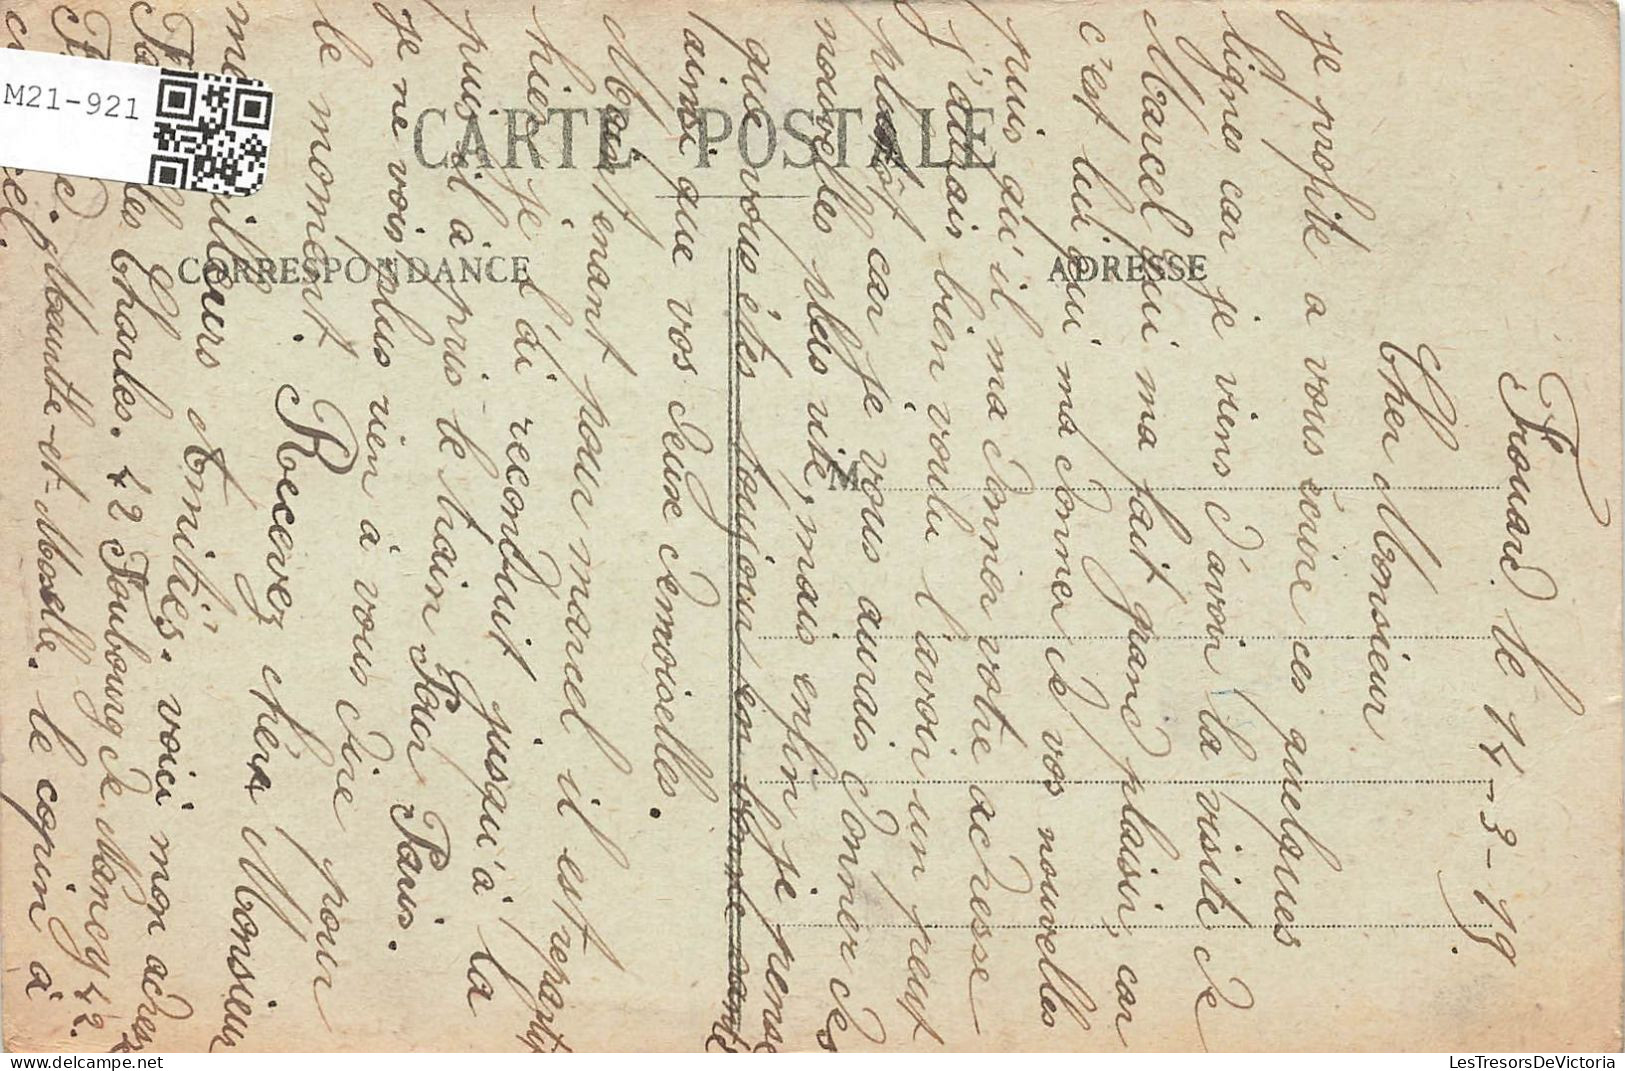 M21-921
CARTE POSTALE
CORRESPONDANCE
ADRESSE
M
Frouard le 14-3-19.
Cher Monsieur
Je profite a vous écrire ces quelques
lignes car je viens d'avoir la visite de
Marcel qui ma fait grand plaisir, car
c'est lui qui ma donner de vos nouvelles
puis qu'il ma donner votre adresse
j'aurais bien voulu l'avoir un peut
plutôt car je vous aurais donner des
nouvelles plus vite, mais enfin je pense
que vous êtes toujour en bonne santé
ainsi que vos deux demoiselles.
Maint enant pour marcel il est repartit
hier je l'ai recontuit jusqu'à la
puis il à pris le train Pour Paris.
je ne vois plus rien à vous dire pour
le moment.
Recevez cher Monsieur
me illeurs Amitiés. voici mon adres
les Charles. 42 Foubourg de Nancy 42.
Meurthe-et-Moselle. le copin à
cel.
LesTresorsDeVictoria